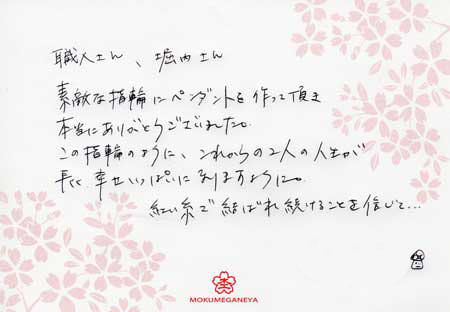 職人さん、堀内さん
素敵な指輪にペンダントを作って頂き
本当にありがとうございました。
この指輪のように、これからの2人の人生が
長く幸せいっぱいになりますように。
紅い糸で結ばれ続けることを信じて…
MOKUMEGANEYA